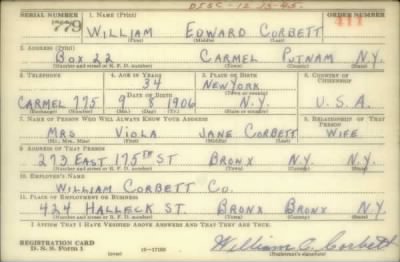 DISC-12-13-45.
SERIAL NUMBER 1. NAME (Print) ORDER NUMBER
779 WILLIAM EDWARD CORBETT 411
(First) (Middle) (Last)
2. ADDRESS (Print)
BOX 22 CARMEL PUTNAM N.Y.
(Number and street or R. F. D. number) (Town) (County) (State)
3. TELEPHONE 4. AGE IN YEARS 5. PLACE OF BIRTH 6. COUNTRY OF CITIZENSHIP
34 NEW YORK
DATE OF BIRTH (Town or county)
CARMEL 775 9 8 1906 N.Y. U.S.A.
(Exchange) (Number) (Mo.) (Day) (Yr.) (State or country)
7. NAME OF PERSON WHO WILL ALWAYS KNOW YOUR ADDRESS 8. RELATIONSHIP OF THAT PERSON
MRS VIOLA JANE CORBETT WIFE
(Mr., Mrs., Miss) (First) (Middle) (Last)
9. ADDRESS OF THAT PERSON
273 EAST 175TH ST BRONX N.Y. N.Y.
(Number and street or R. F. D. number) (Town) (County) (State)
10. EMPLOYER'S NAME
WILLIAM CORBETT CO.
11. PLACE OF EMPLOYMENT OR BUSINESS
424 HALLECK ST. BRONX BRONX N.Y.
(Number and street or R. F. D. number) (Town) (County) (State)
I AFFIRM THAT I HAVE VERIFIED ABOVE ANSWERS AND THAT THEY ARE TRUE.
REGISTRATION CARD
D. S. S. Form 1 (over) William E. Corbett
(Registrant's signature)